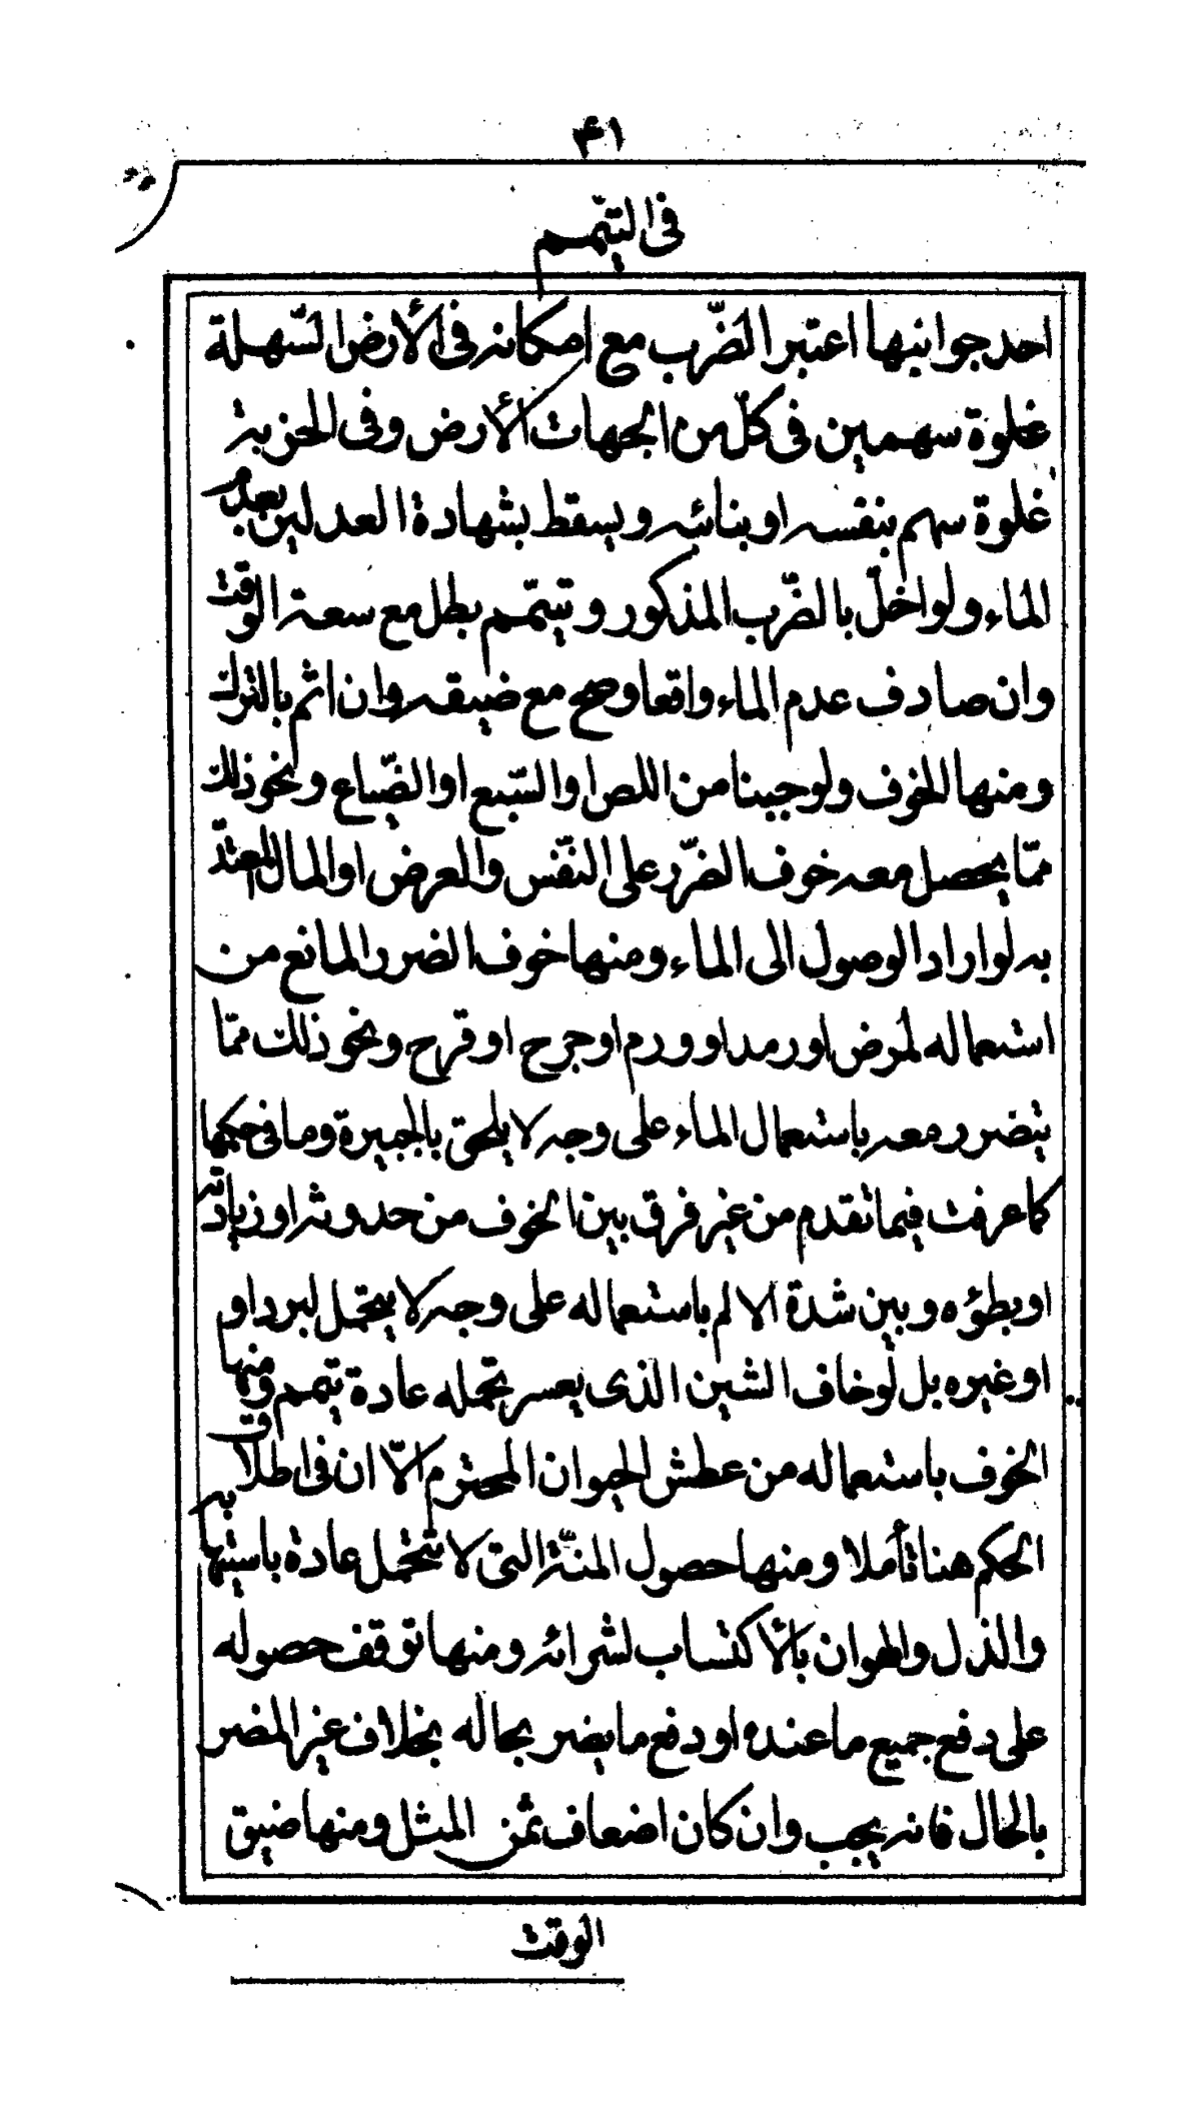 ۴۱
فى التيمّم
احد جوانبها اعتبر الضّرب مع امكانه فى الأرض السّهلة
غلوة سهمين فى كلّ من الجهات الأرض وفى الحزنة
غلوة سهم بنفسه او بنائبه ويسقط بشهادة العدلين بعدم
الماء ولو اخلّ بالضّرب المذكور وتيتمّم بطل مع سعة الوقت
وان صادف عدم الماء واقعا وصح مع ضيقه وان اثم بالترك
ومنها الخوف ولو جبنا من اللص او السّبع او الضّياع ونحو ذلك
ممّا يحصل معه خوف الضّرر على النّفس والعرض او المال المعتدّ
به لو اراد الوصول الى الماء ومنها خوف الضرر المانع من
استعماله لمرض او رمد او ورم او جرح او قرح ونحو ذلك ممّا
يتضرر معه باستعمال الماء على وجه لا يلحق بالجبيرة وما فى حكمها
كما عرفت فيما تقدم من غير فرق بين الخوف من حدوثه او زيادته
او بطؤه وبين شدة الالم باستعماله على وجه لا يتحمل لبرد او
او غيره بل لو خاف الشين الذى يعسر تحمله عادة تيمم ومنها
الخوف باستعماله من عطش الحيوان المحترم الاّ ان فى اطلاق
الحكم هنا تأملا ومنها حصول المنّة التى لا تتحمل عادة باستيهابه
والذل والهوان بالأكتساب لشرائه ومنها توقف حصوله
على دفع جميع ما عنده او دفع ما يضر بحاله بخلاف غير المضر
بالحال فانه يجب وان كان اضعاف ثمن المثل ومنها ضيق
الوقت